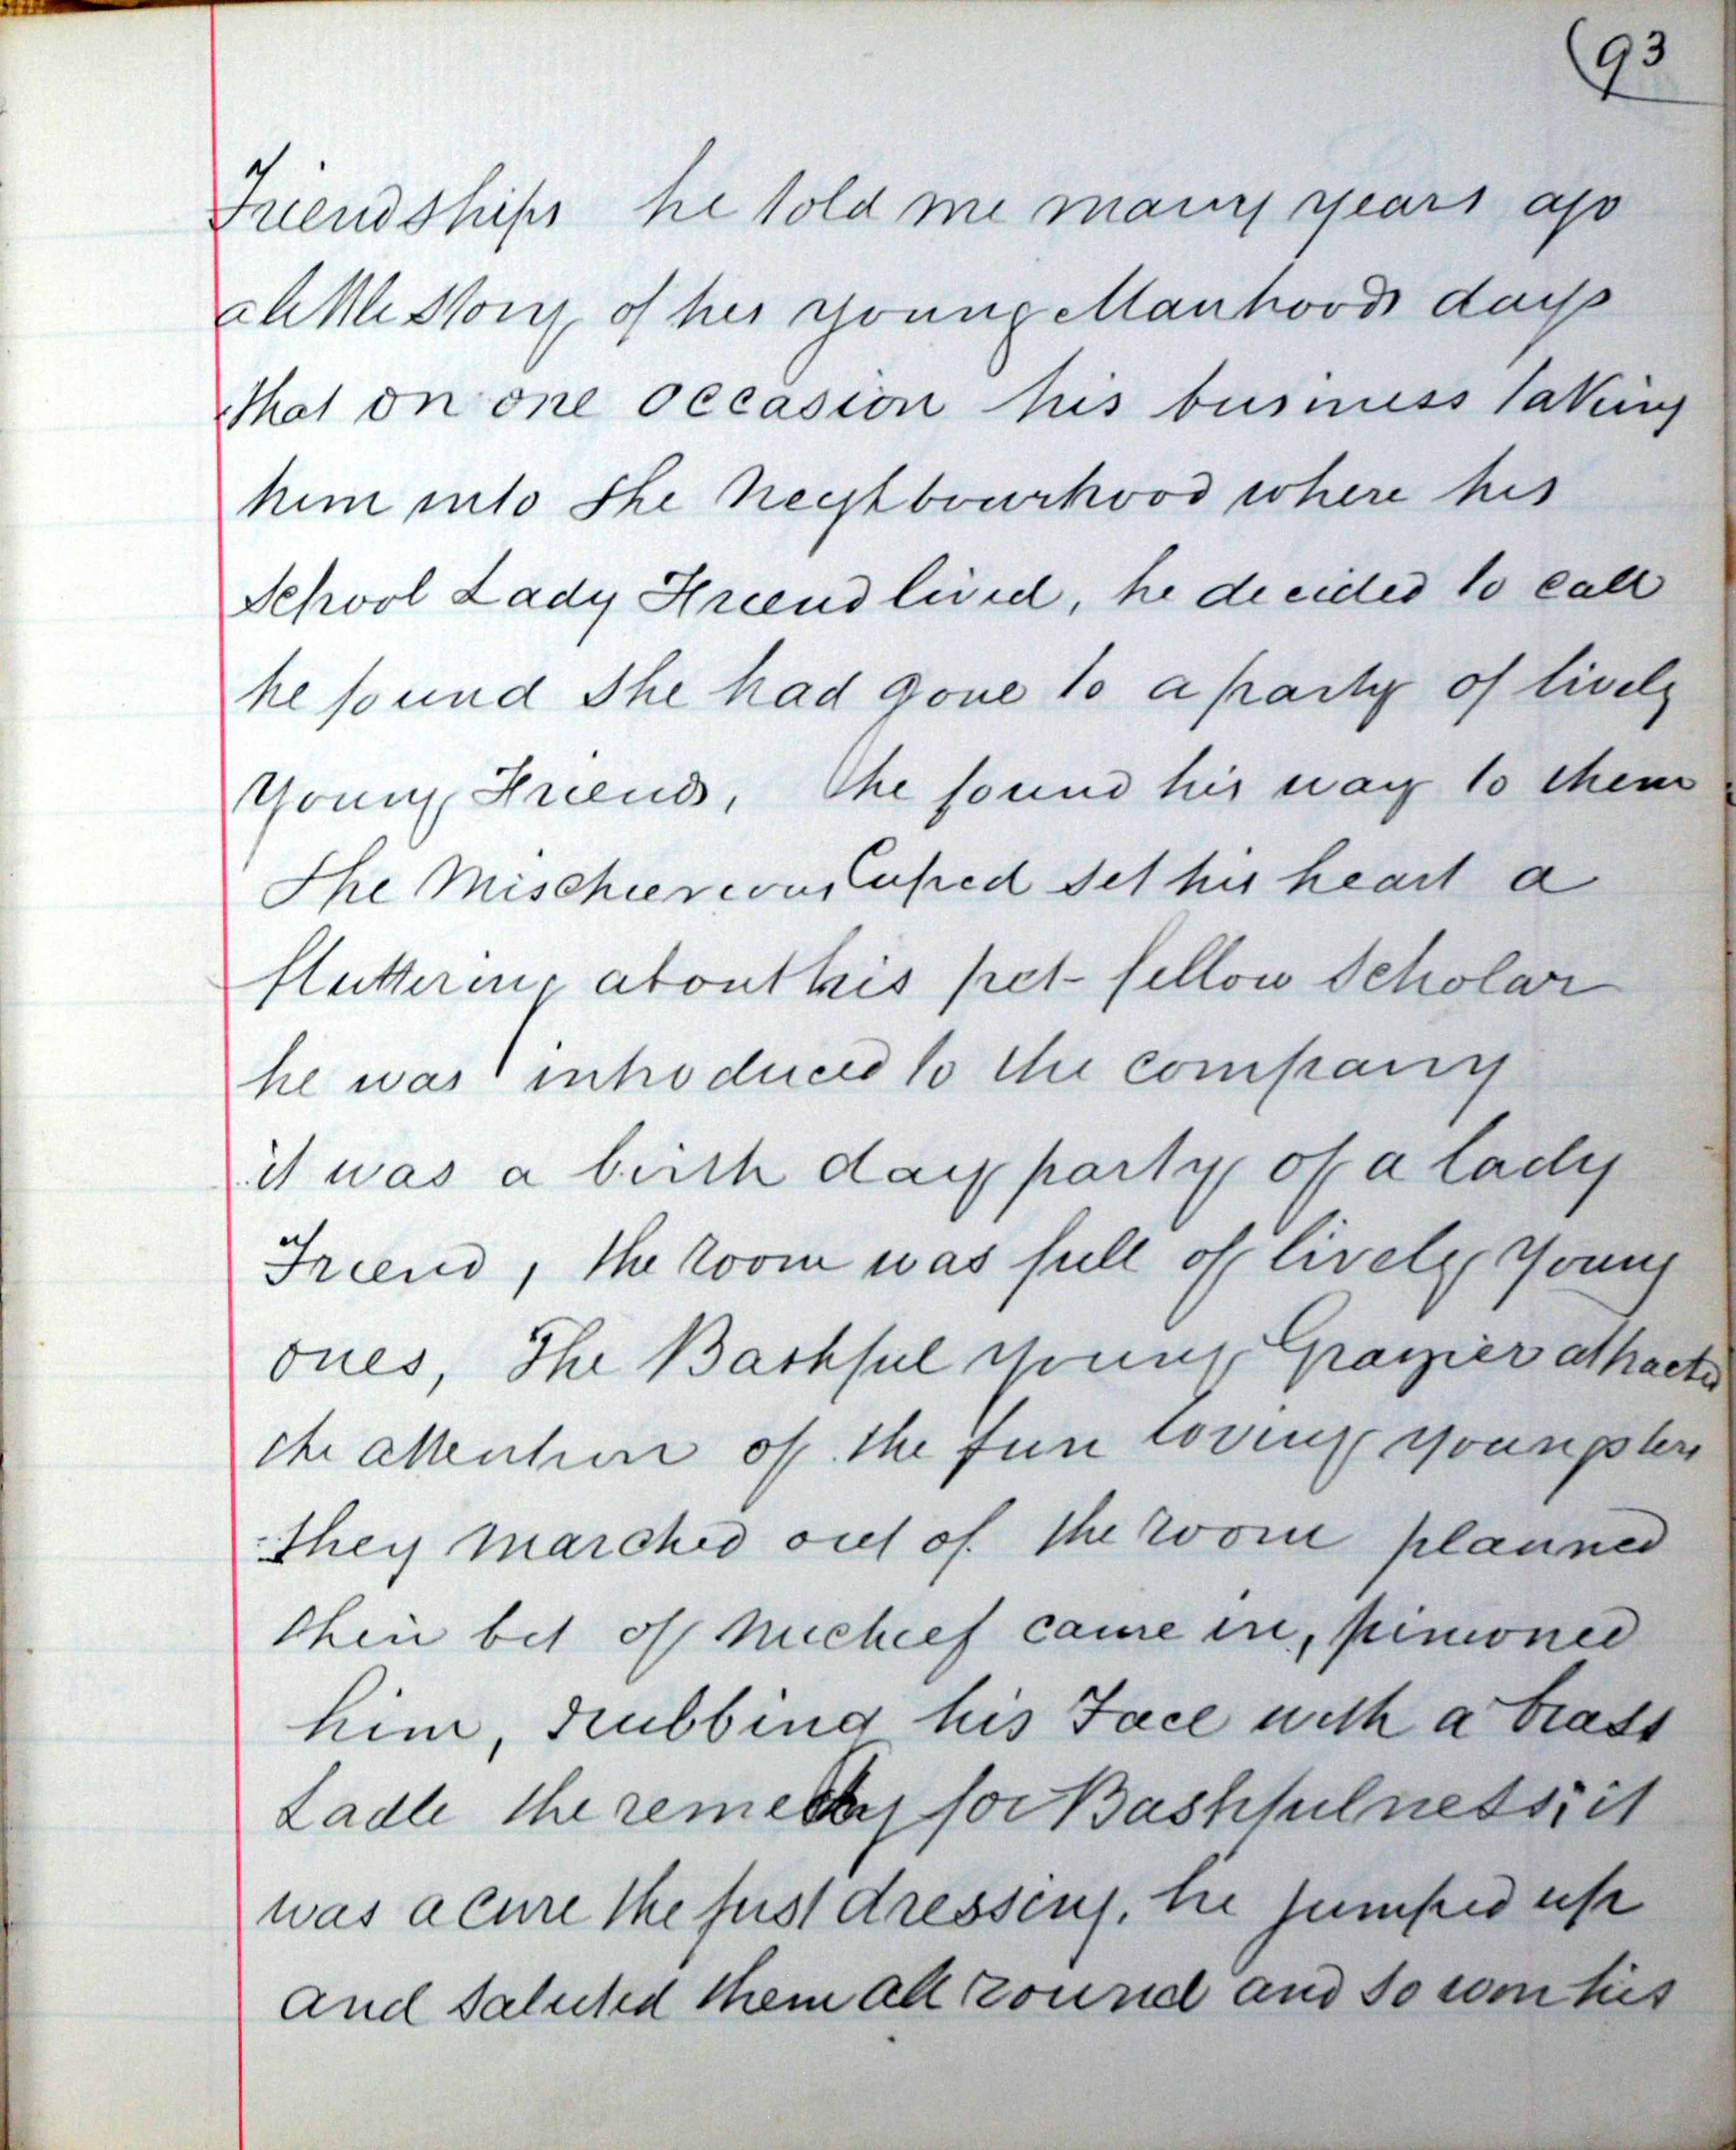 (93
Friendships he told me many years ago
a little story of his young Manhoods days
that on one occasion his business taking
him into the Neighbourhood where his
School Lady Friend lived, he decided to call
he found She had gone to a party of lively
Young Friends, he found his way to them
The Mischievious Cupid set his heart a
fluttering about his pet-fellow Scholar
he was introduced to the company
it was a birth day party of a lady
Friend, the room was full of lively Young
ones, The Bashful young Grazier attracted
the attention of the fun loving youngsters
they marched out of the room planned
their bit of Mischief came in, pinioned
him, rubbing his Face with a brass
Ladle the remedy for Bashfulness; it
was a cure the first dressing, he jumped up
and saluted them all round and so won his